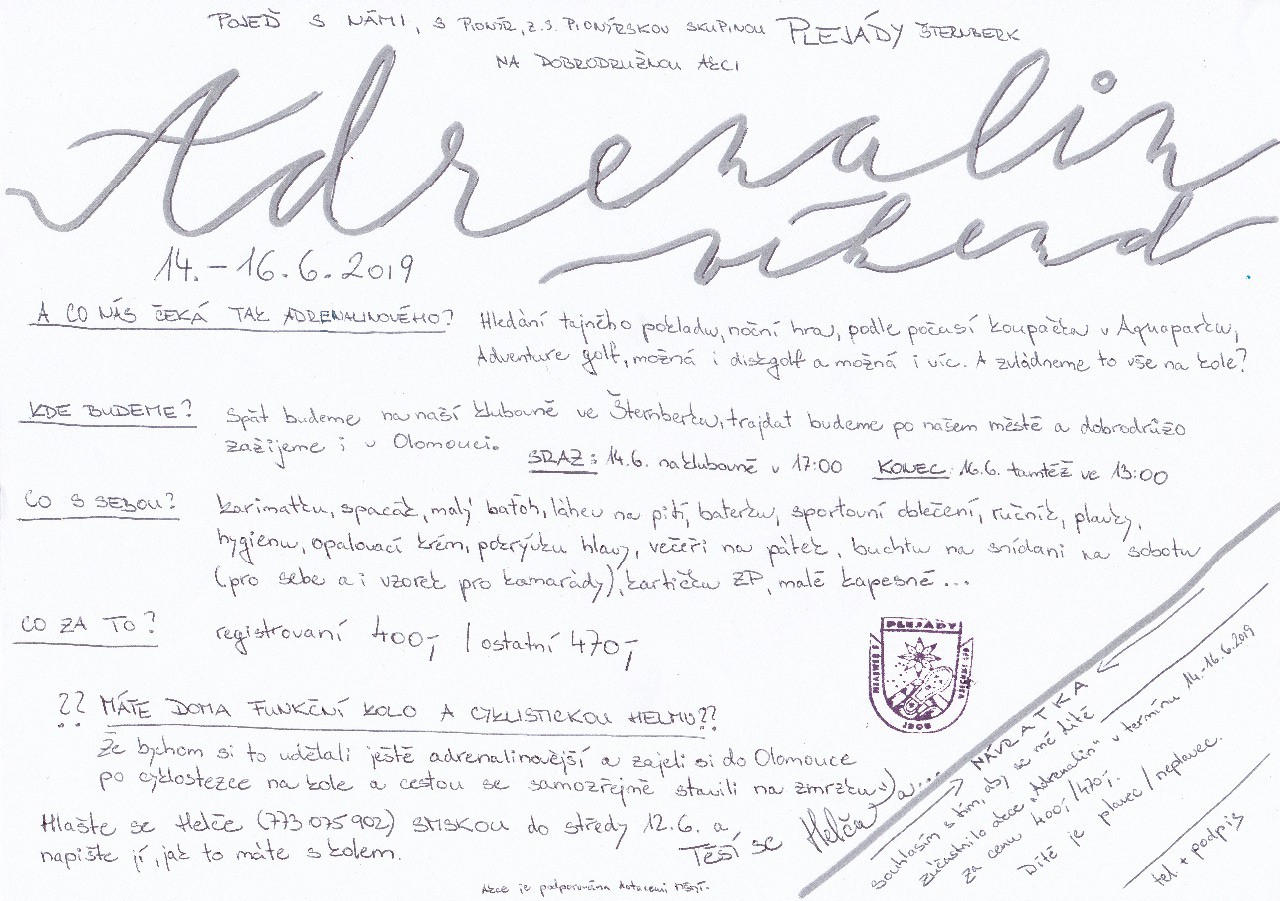 POJEĎ S NÁMI, S PIONÝR, Z.S. PIONÝRSKOU SKUPINOU PLEJÁDY ŠTERNBERK
NA DOBRODRUŽNOU AKCI
Adrenalin
víkend
14. – 16. 6. 2019
A CO NÁS ČEKÁ TAK ADRENALINOVÉHO? Hledání tajného pokladu, noční hra, podle počasí koupačka v Aquaparku,
Adventure golf, možná i diskgolf a možná i víc. A zvládneme to vše na kole?
KDE BUDEME? Spát budeme na naší klubovně ve Šternberku, trajdat budeme po našem městě a dobrodrůžo
zažijeme i v Olomouci. SRAZ: 14.6. na klubovně v 17:00 KONEC: 16.6. tamtéž ve 13:00
CO S SEBOU? karimatku, spacák, malý baťoh, láhev na pití, baterku, sportovní oblečení, ručník, plavky,
hygienu, opalovací krém, pokrývku hlavy, večeři na pátek, buchtu na snídani na sobotu
(pro sebe a i vzorek pro kamarády), kartičku ZP, malé kapesné ...
CO ZA TO? registrovaní 400,- / ostatní 470,-
PLEJÁDY
?? MÁTE DOMA FUNKČNÍ KOLO A CYKLISTICKOU HELMU??
Že bychom si to udělali ještě adrenalinovější a zajeli si do Olomouce
po cyklostezce na kole a cestou se samozřejmě stavili na zmrzku :) a ...
Hlašte se Helče (773 075 902) SMSKOU do středy 12.6. a
napište jí, jak to máte s kolem.
Těší se Helča
Akce je podporována dotacemi MŠMT.
NÁVRATKA
Souhlasím s tím, aby se mé dítě
zúčastnilo akce „Adrenalin" v termínu 14.-16.6.2019
za cenu 400,-/470,-.
Dítě je plavec / neplavec.
tel. + podpis